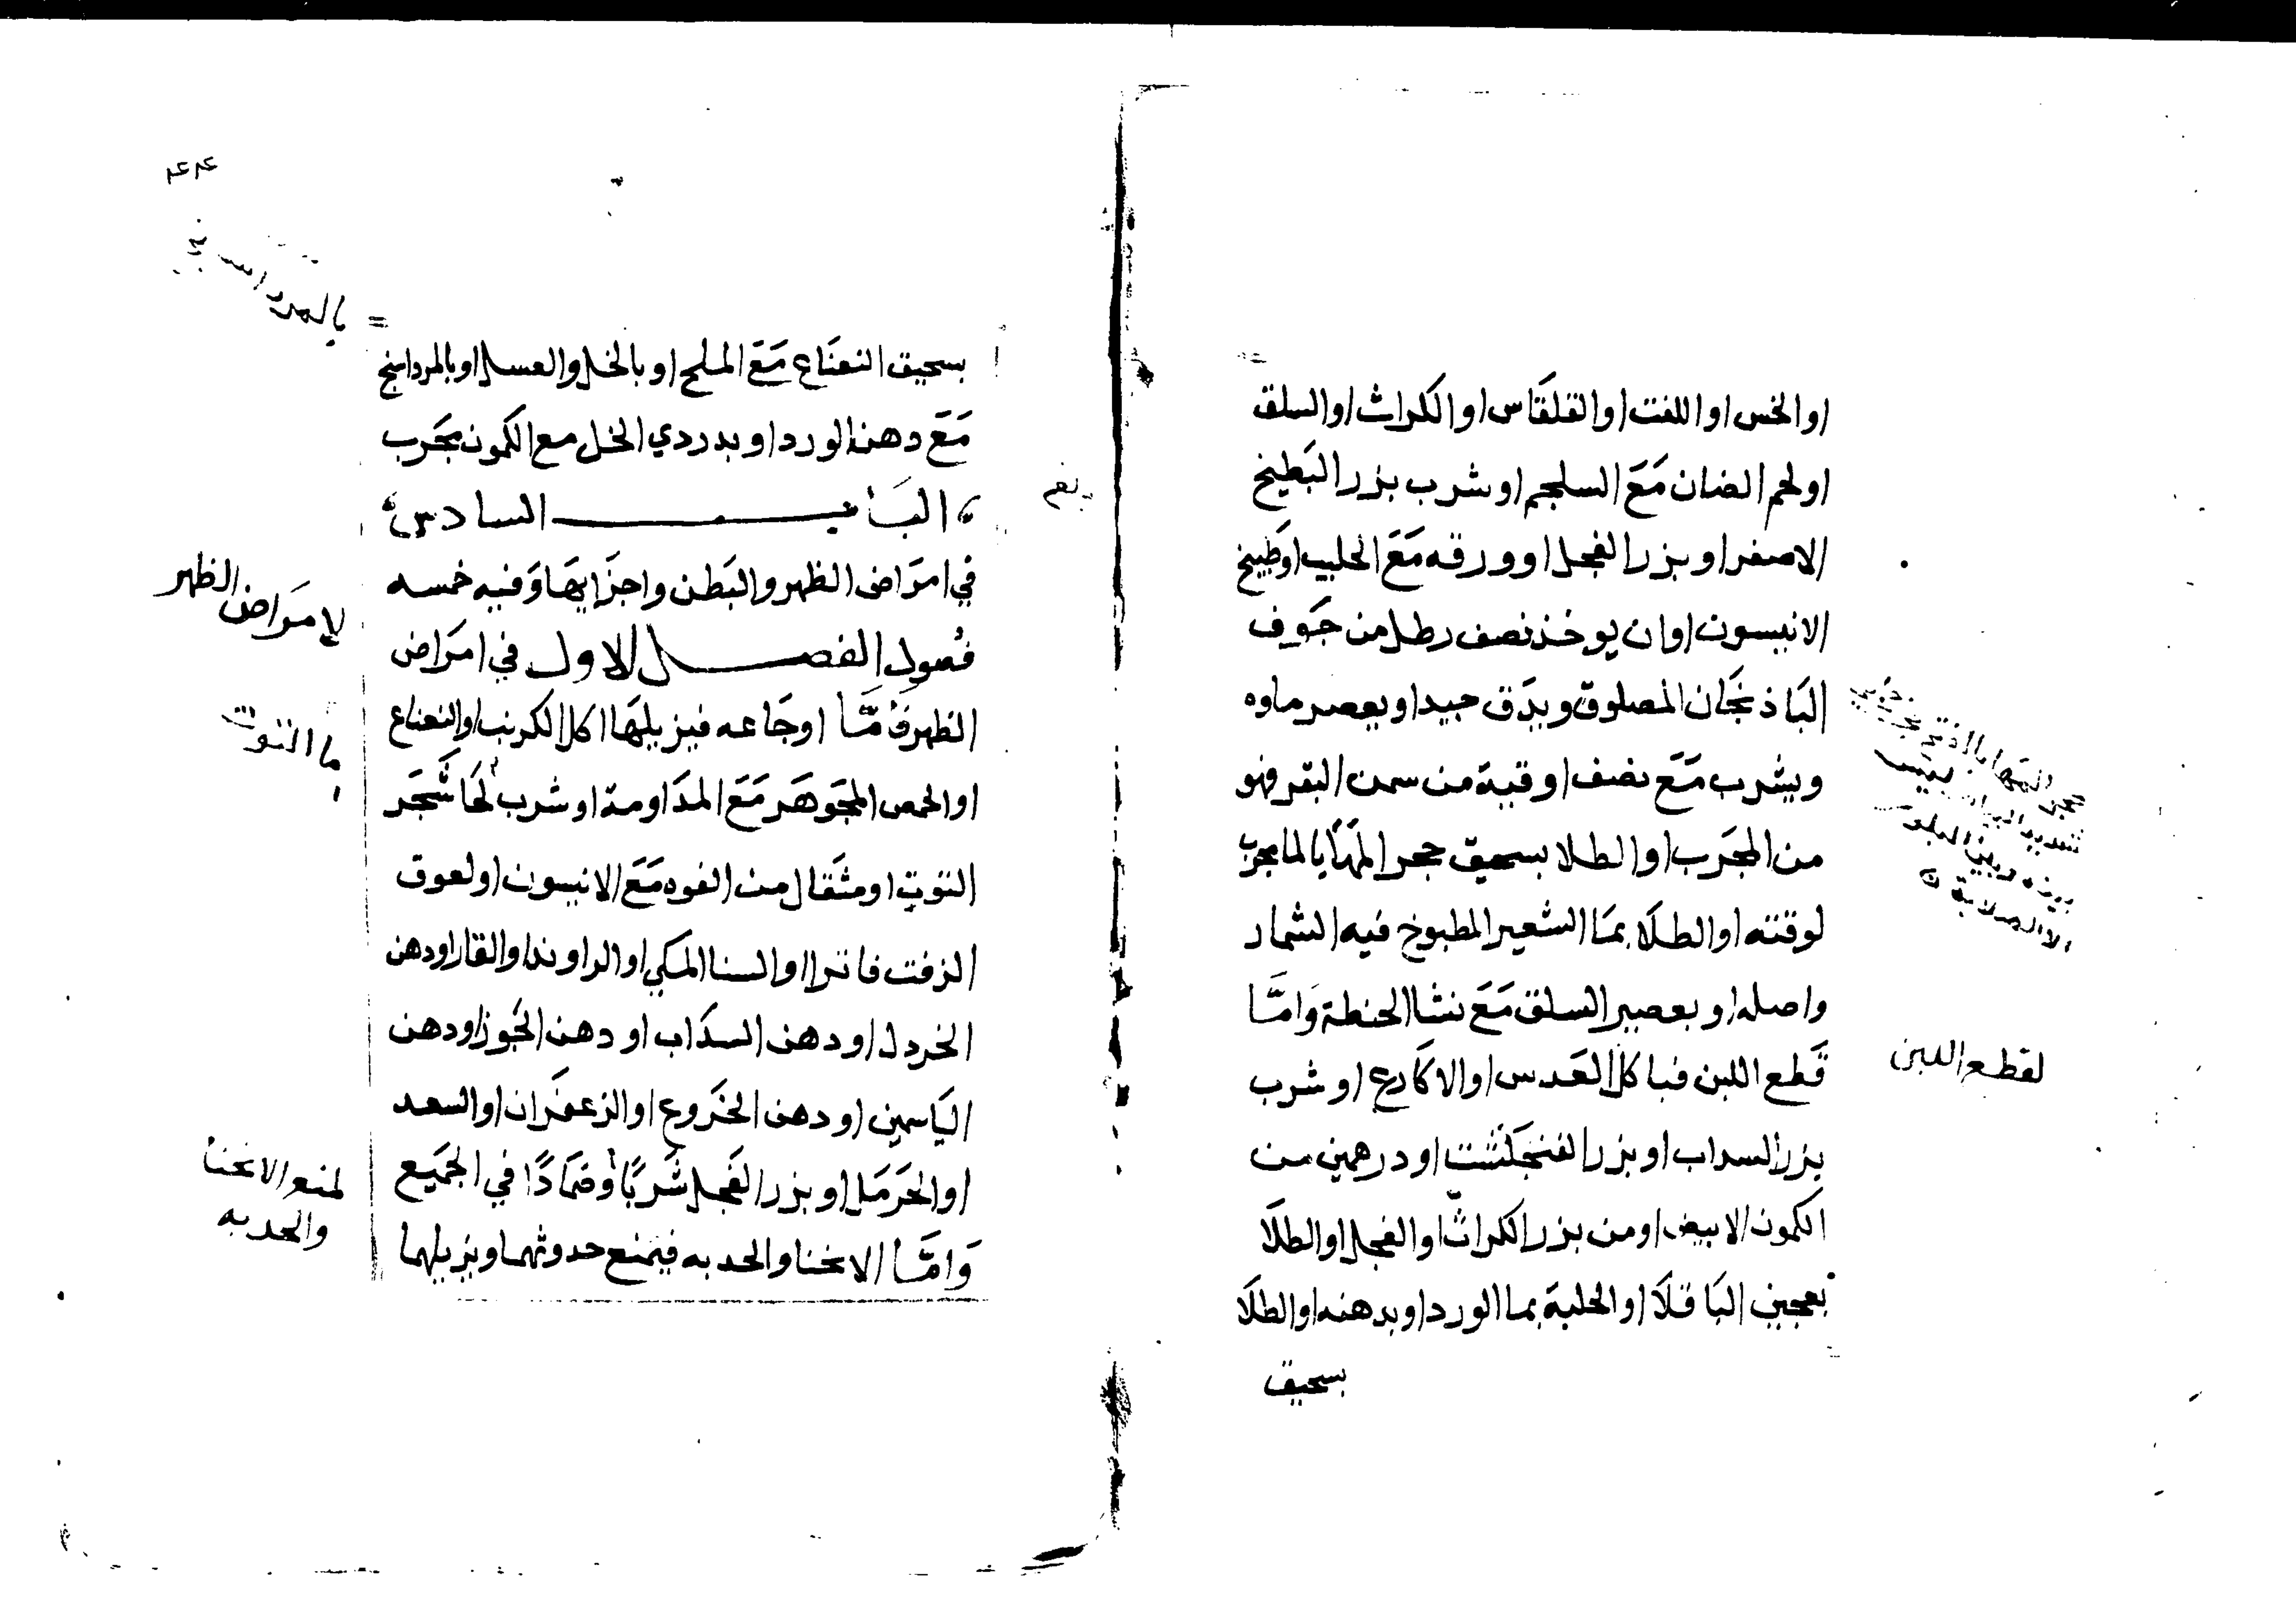 او الخس او اللفت او القلقاس او الكراث او السلق
او لحم الضان مَعَ السلجم او شرب بزر البَطيخ
الاصفر او بزر الفجل او ورقه مَعَ الحليب او طَبيخ
الانيسون او ان يوخذ نصف رطل من جَوف
البَاذنجَان المصلوق ويدَق جيدا ويعصر ماوه
ويشرب مَعَ نصف اوقية من سمن البقر فهو
من المجَرب او الطلا بسحيق حجر المهَا بالما مجرب
لوقته او الطلَا بمَا الشعير المطبوخ فيه الشمار
واصله او بعصير السلق مَعَ نشا الحنطة وَامَّا
قَطع اللبن فباكل العَدس او الاكَارع او شرب
بزر السداب او بزر الفنجَنكشت او درهمين من
الكمون الابيض او من بزر الكراث او الفجل او الطلَا
بعجين البَاقلَا او الحلبة بما الورد او بدهنه او الطلَا
بسحيق
لقطع اللبن
٤٤
بسحيق النعنَاع مَعَ الملح او بالخل والعسل او بالمرداسنج
مَعَ دهن الورد او بدردي الخل مع الكمون مجَرب
البَاب السادس
في امرَاض الظهر والبَطن واجزَايهَا وَفيه خمسه
فُصول الفصل الاول في امرَاض
الظهر فَامَّا اوجَاعه فيزيلهَا اكل الكرنب او النعناع
او الحمص المجَوهَر مَعَ المدَاومة او شرب لحَا شَجَر
التوت او مثقَال من الفوه مَعَ الانيسون او لعوق
الزفت فاترا او السنا المكي او الراوند او القار او دهن
الخردل او دهن السدَاب او دهن الجَوز او دهن
اليَاسمين او دهن الخَروع او الزعفَران او السعد
او الحَرمَل او بزر الفَجل شَربًا وضمَادًا في الجَميع
وَامَّا الانحنا والحدبه فيمنع حدوثهما ويزيلهما
بالمرداسنج
لامرَاض الظهر
ما التوت
لمنع الانحنا
والحدبه